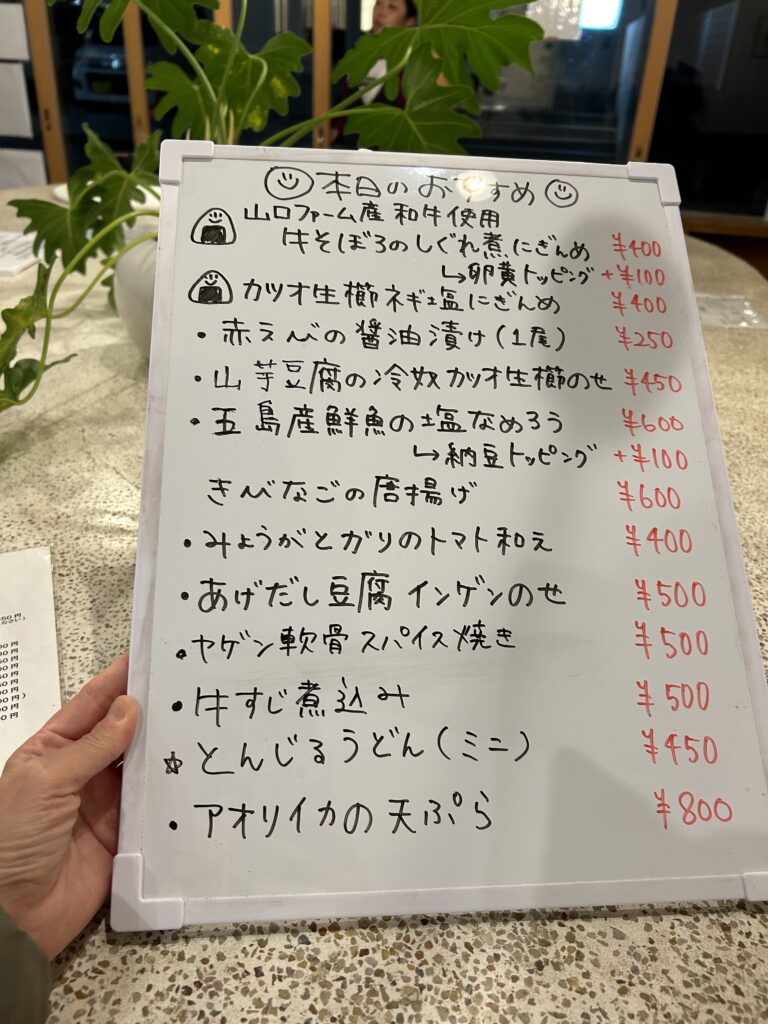 本日のおすすめ
山口ファーム産 和牛使用
牛そぼろのしぐれ煮にぎんめ ¥400
↳卵黄トッピング +¥100
カツオ生節ネギ塩にぎんめ ¥400
・赤えびの醤油漬け(1尾) ¥250
・山芋豆腐の冷奴カツオ生節のせ ¥450
・五島産鮮魚の塩なめろう ¥600
↳納豆トッピング +¥100
きびなごの唐揚げ ¥600
・みょうがとガリのトマト和え ¥400
・あげだし豆腐 インゲンのせ ¥500
・ヤゲン軟骨スパイス焼き ¥500
・牛すじ煮込み ¥500
☆とんじるうどん(ミニ) ¥450
・アオリイカの天ぷら ¥800